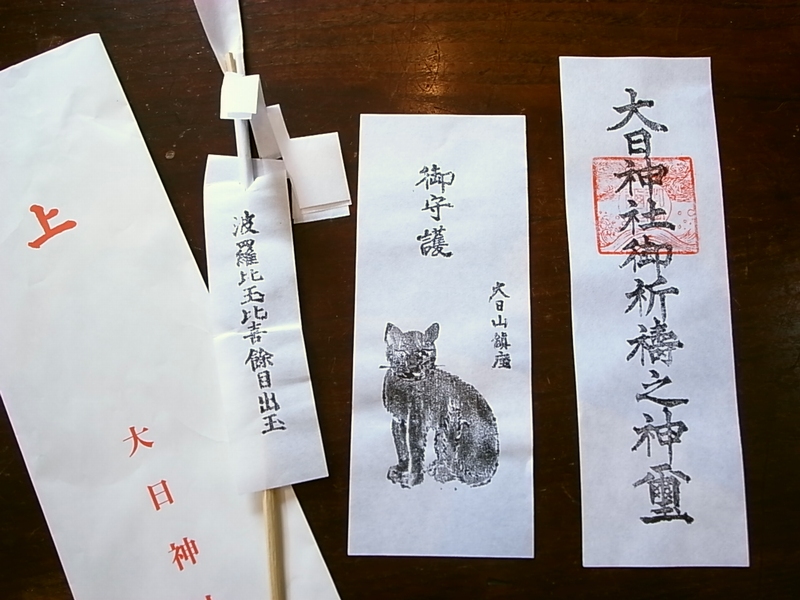 大日神社御祈禱之神璽
御守護
大日山鎮座
波羅比玉比喜餘目出玉
上
大日神